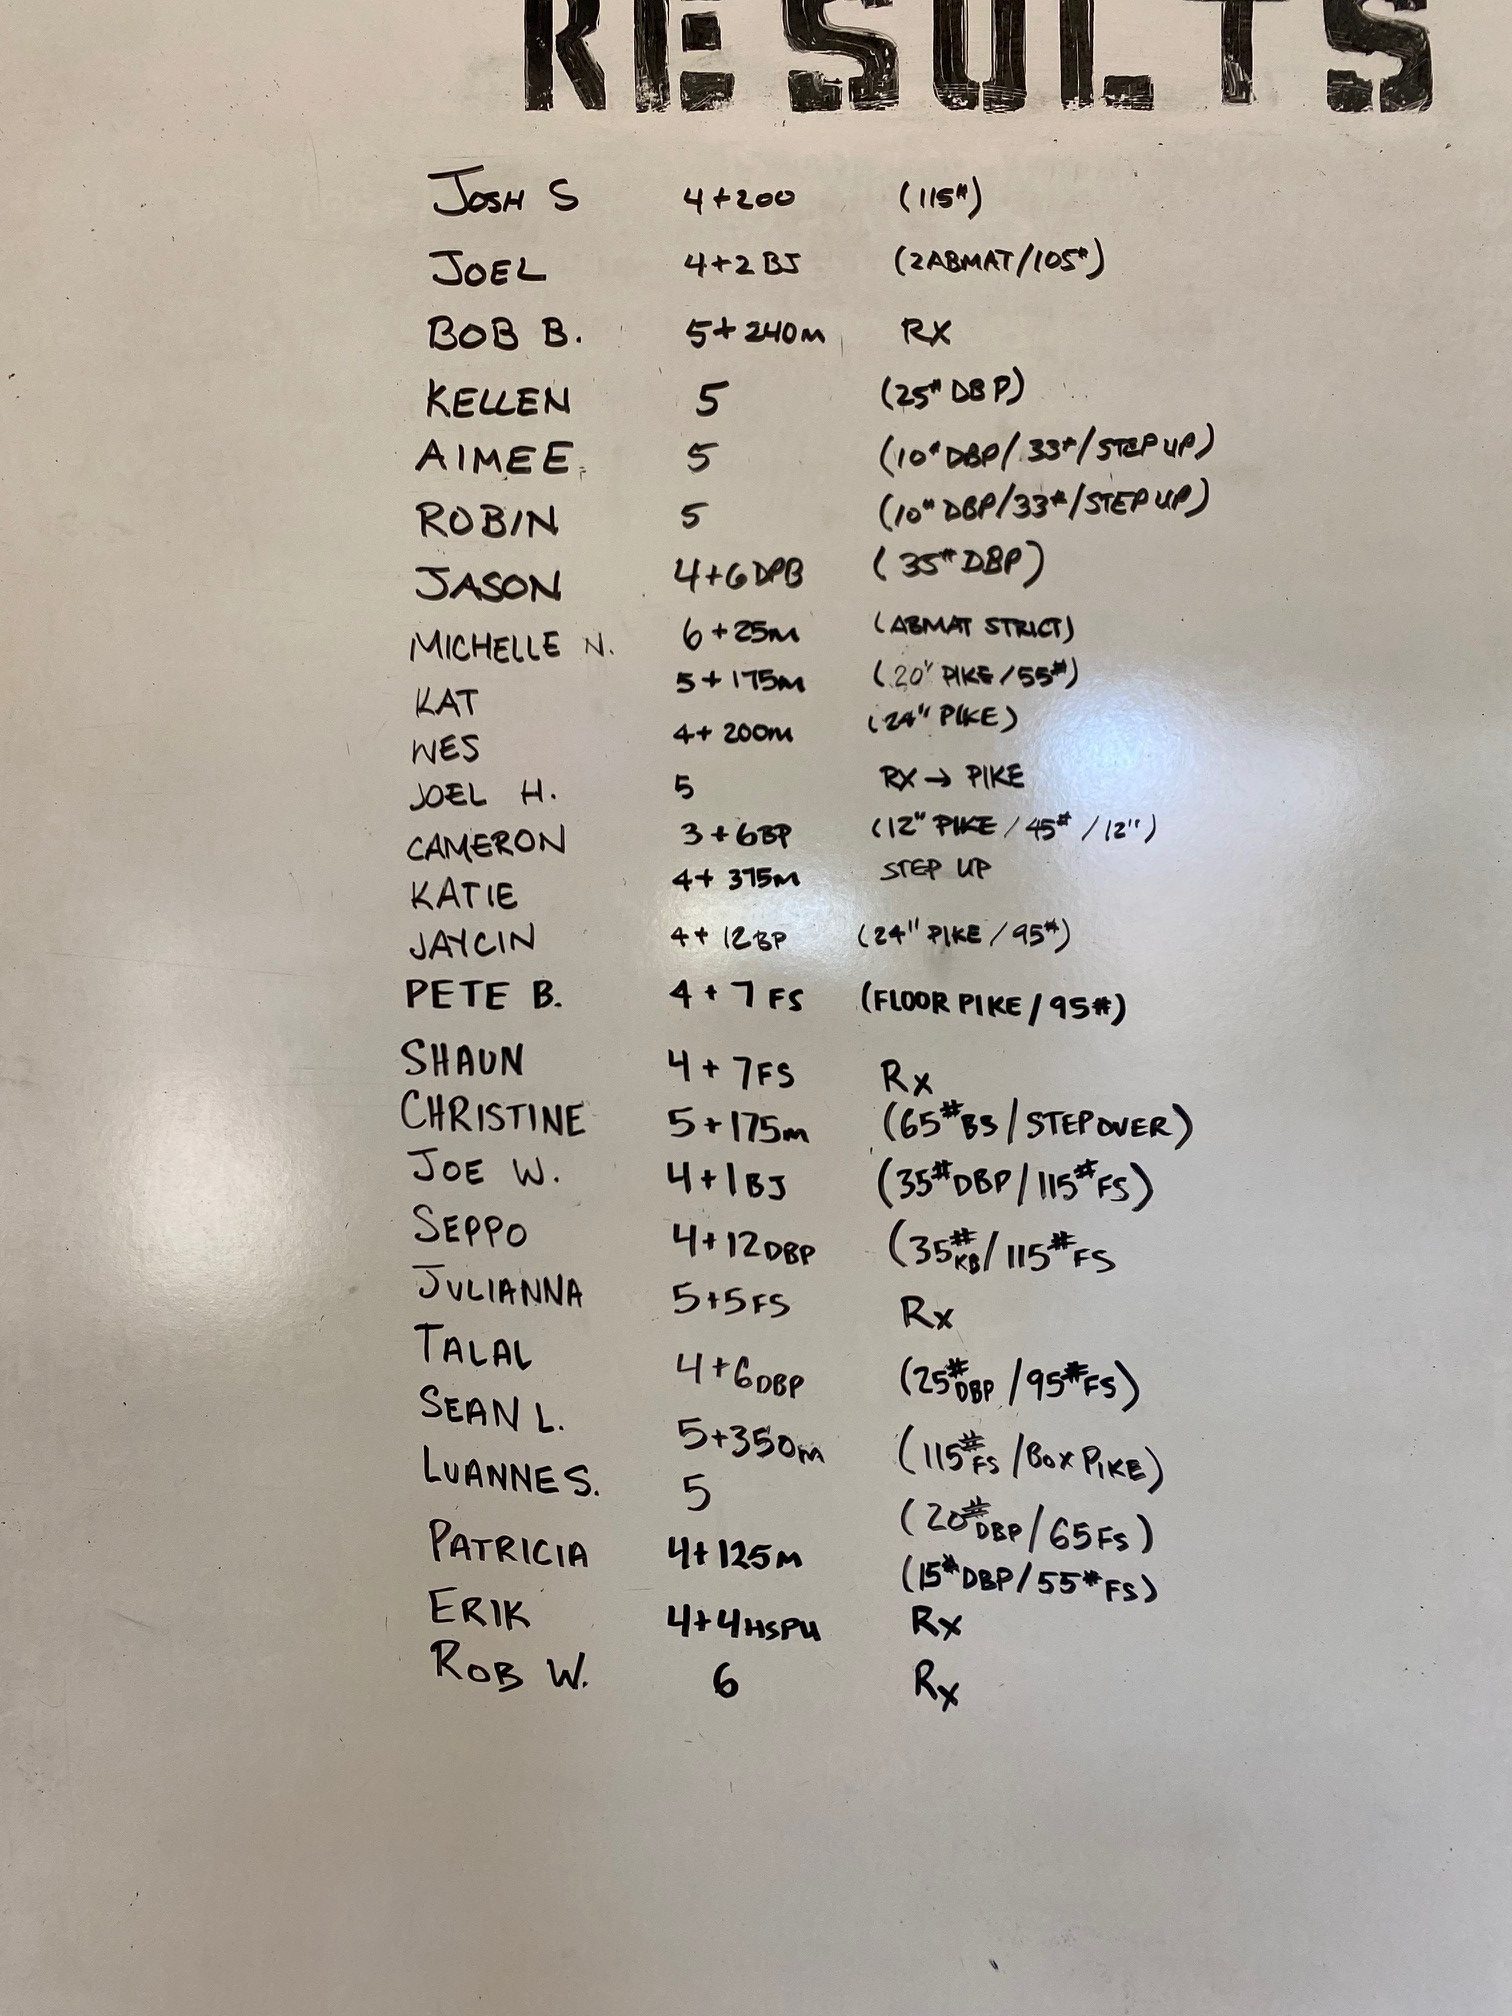 RESULTS
JOSH S 4+200 (115#)
JOEL 4+2 BJ (2ABMAT/105#)
BOB B. 5+240m RX
KELLEN 5 (25# DBP)
AIMEE 5 (10# DBP/33#/STEP UP)
ROBIN 5 (10# DBP/33#/STEP UP)
JASON 4+6 DPB (35# DBP)
MICHELLE N. 6+25m (ABMAT STRICT)
KAT 5+175m (20" PIKE/55#)
WES 4+200m (24" PIKE)
JOEL H. 5 RX → PIKE
CAMERON 3+6BP (12" PIKE/45#/12")
KATIE 4+375m STEP UP
JAYCIN 4+12BP (24" PIKE/95#)
PETE B. 4+7 FS (FLOOR PIKE/95#)
SHAUN 4+7FS Rx
CHRISTINE 5+175m (65# BS/STEP OVER)
JOE W. 4+1BJ (35# DBP/115# FS)
SEPPO 4+12DBP (35# KB/115# FS
JULIANNA 5+5FS Rx
TALAL 4+6DBP (25# DBP/95# FS)
SEAN L. 5+350m (115# FS/BOX PIKE)
LUANNE S. 5 (20# DBP/65FS)
PATRICIA 4+125M (15# DBP/55# FS)
ERIK 4+4HSPU Rx
ROB W. 6 Rx